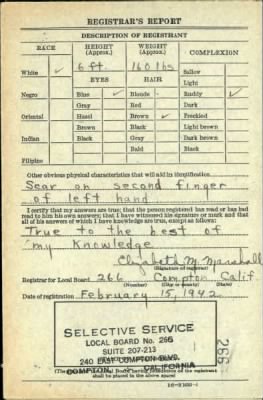 REGISTRAR'S REPORT
DESCRIPTION OF REGISTRANT
RACE HEIGHT (Approx.) WEIGHT (Approx.) COMPLEXION
White ✓ 6 ft. 160 lbs Sallow
EYES HAIR Light
Negro Blue ✓ Blonde Ruddy ✓
Gray Red Dark
Oriental Hazel Brown ✓ Freckled
Brown Black Light brown
Indian Black Gray Dark brown
Bald Black
Filipino
Other obvious physical characteristics that will aid in identification
Scar on second finger
of left hand
I certify that my answers are true; that the person registered has read or has had
read to him his own answers; that I have witnessed his signature or mark and that
all of his answers of which I have knowledge are true, except as follows:
True to the best of
my knowledge
Elizabeth M. Marshall
(Signature of registrar)
Registrar for Local Board 266 Compton Calif
(Number) (City or county) (State)
Date of registration February 15, 1942
SELECTIVE SERVICE
LOCAL BOARD No. 266
SUITE 207-213
240 EAST COMPTON BLVD.
COMPTON, CALIFORNIA
266
shall be placed in the above space)